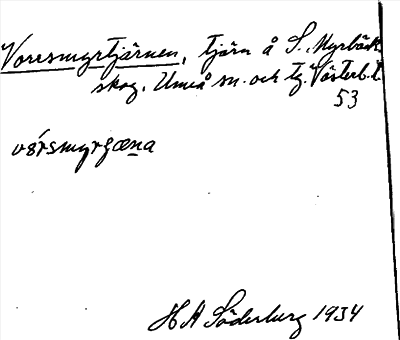 Vorrsmyrtjärnen, tjärn å S. Myrbäck
skog, Umeå sn. och tg. Västerb. l.
53
vórsmyrɟæna
H A Söderberg 1934